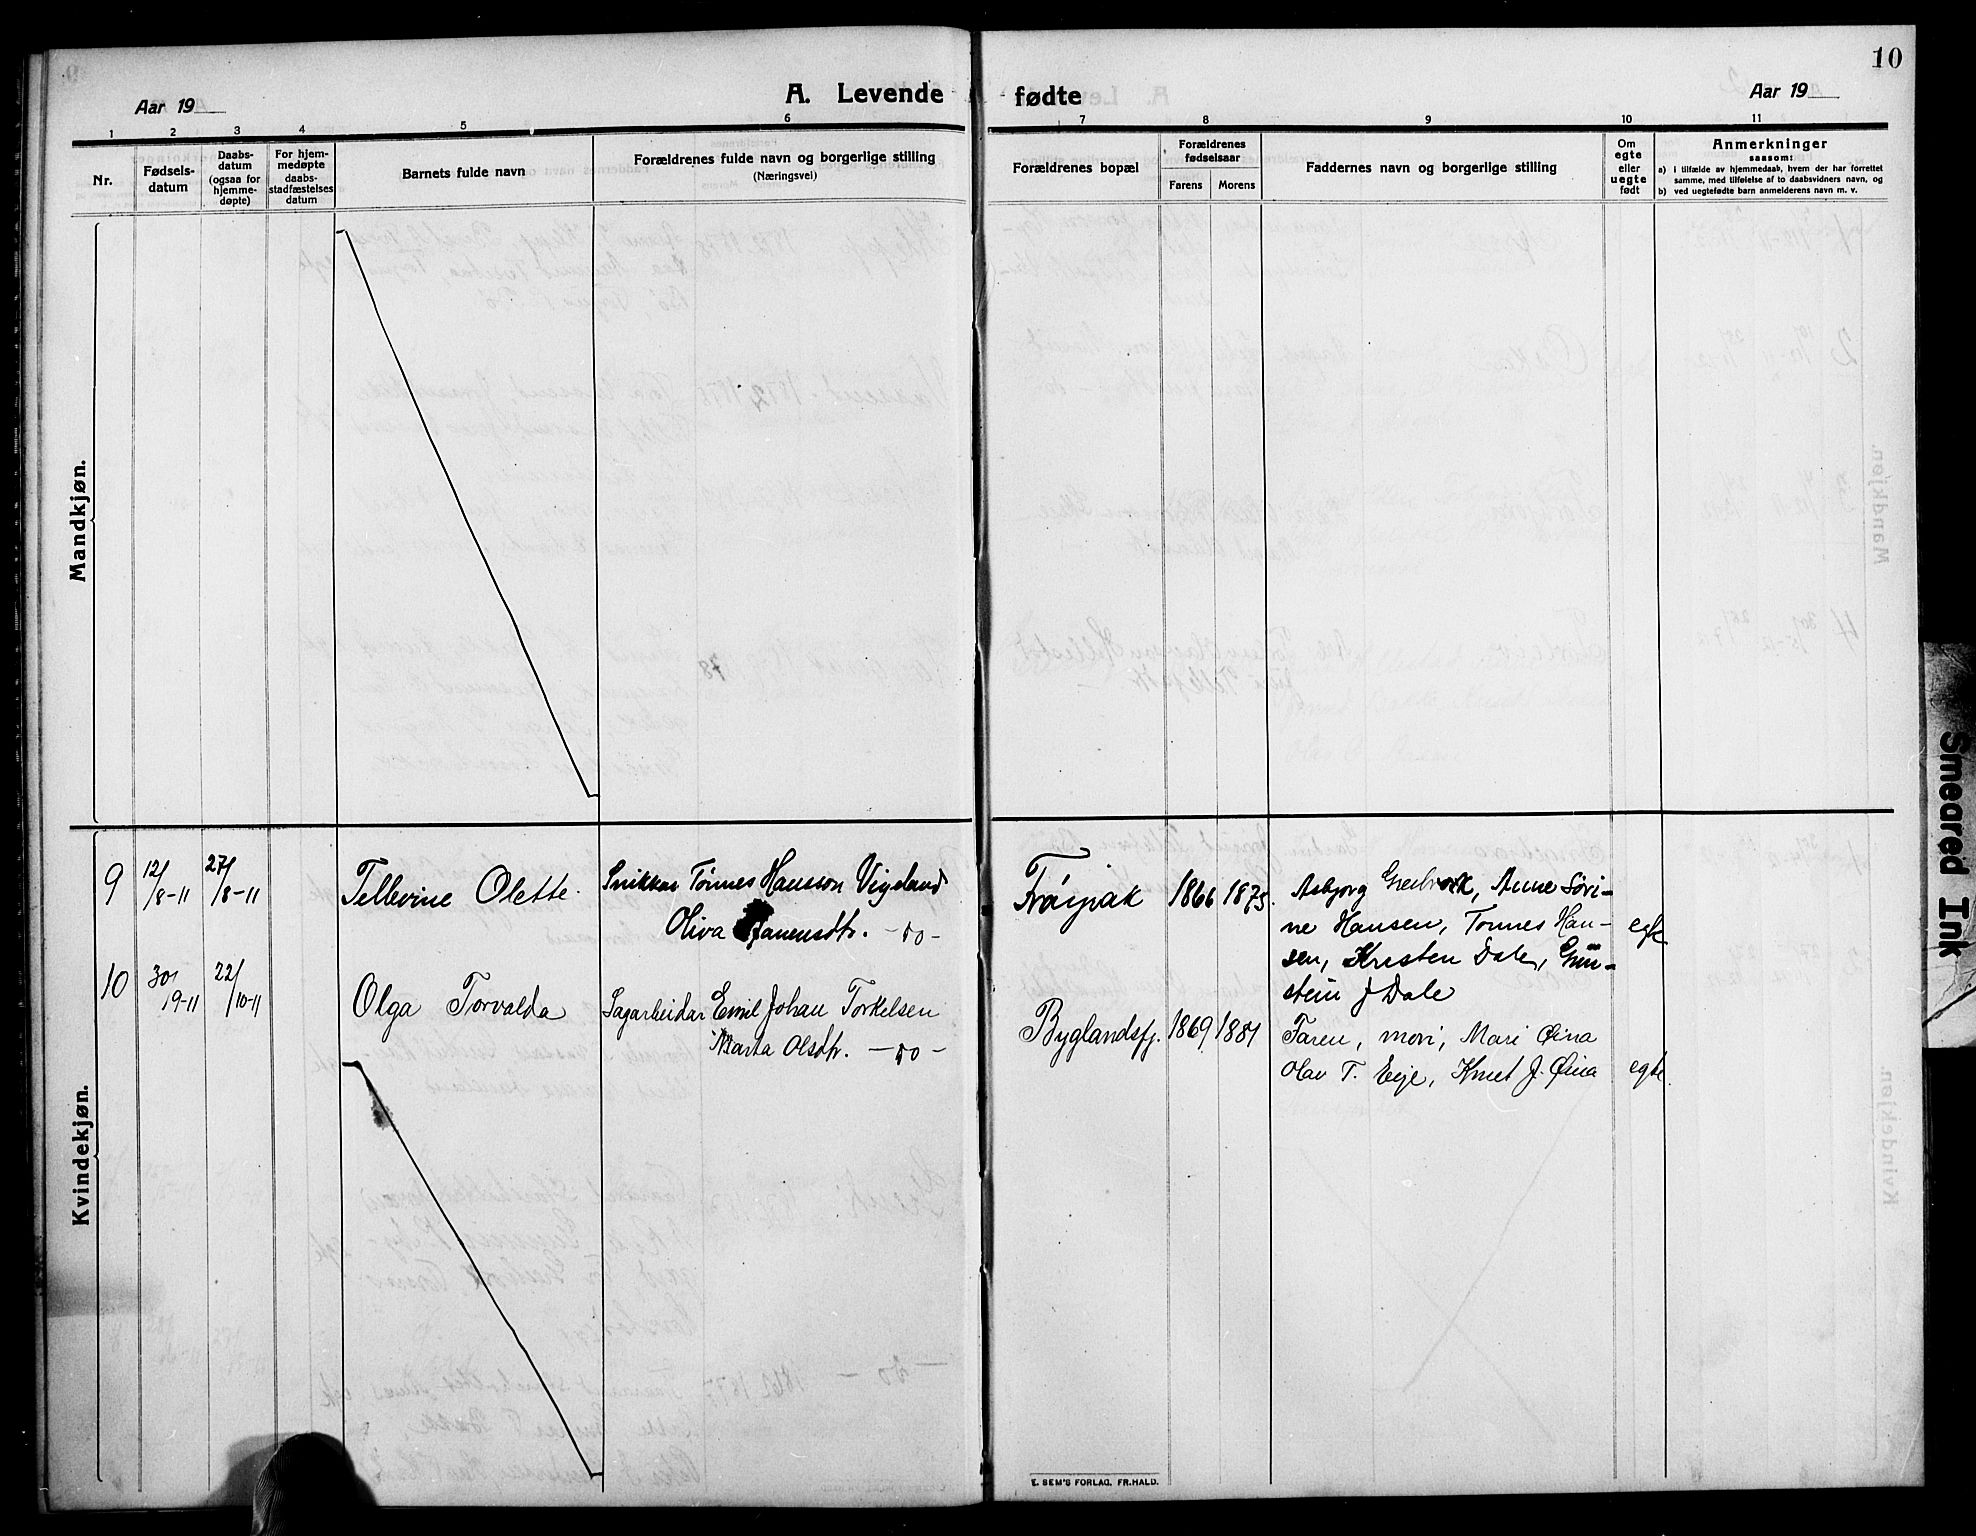 10
Aar 19
A. Levende
fødte
Aar 19
1 2 3 4 5 6
7 8 9 10 11
Nr.
Fødsels-
datum
Daabs-
datum
(ogsaa for
hjemme-
døpte)
For hjem-
medøpte
daabs-
stadfæstelses
datum
Barnets fulde navn
Forældrenes fulde navn og borgerlige stilling
(Næringsvei)
Forældrenes bopæl
Forældrenes
fødselsaar
Farens Morens
Faddernes navn og borgerlige stilling
Om
egte
eller
uegte
født
Anmerkninger
saasom:
a) i tilfælde av hjemmedaab, hvem der har forrettet
samme, med tilføielse af to daabsvidners navn, og
b) ved uegtefødte barn anmelderens navn m. v.
Mandkjøn.
Kvindekjøn.
9 12/8-11 27/8-11 Tellevine Olette. Snikkar Tønnes Hansson Vigeland
Oliva Janensdtr. -do-
Frøisnak 1866 1875. Asbjørg Greibrok, Anne Søri-
ne Hansen, Tønnes Han- egte
sen, Kristen Dale, Gun-
stein J Dale
10 30/9-11 22/10-11 Olga Torvalda Sagarbeidar Emil Johan Torkelsen
Marta Olsdtr. -do-
Byglandsfj. 1869 1881 Faren, mori, Mari Øina
Olav T. Eeje, Knut J. Øina egte.
E. SEM'S FORLAG. FR.HALD.
Smeared Ink